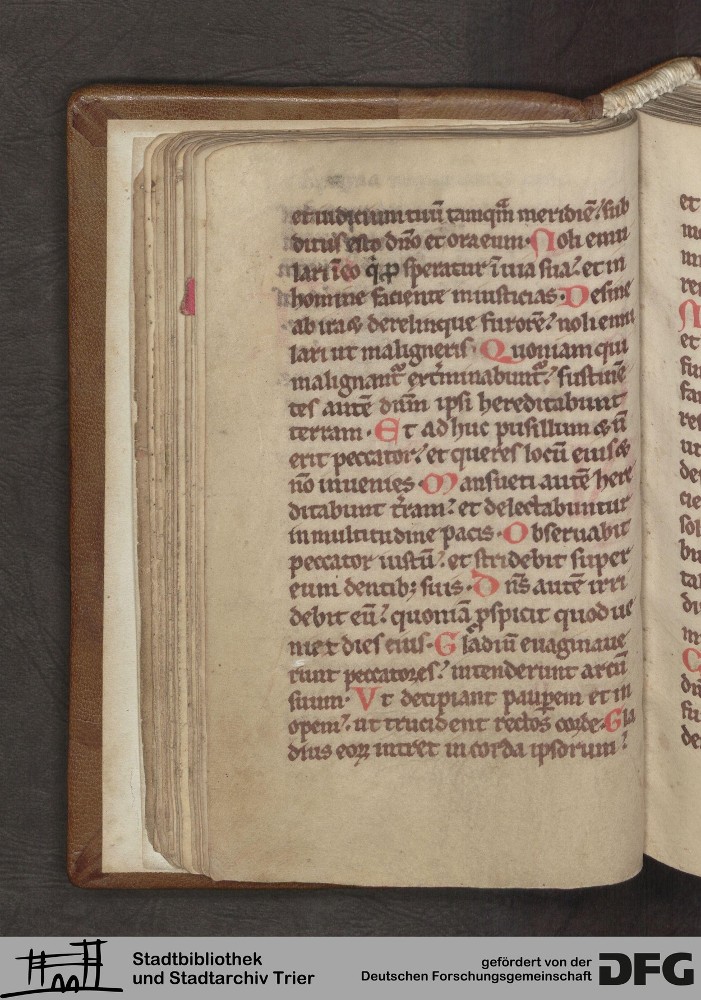 et iudicium tuū tamqm̄ meridiē. sub
ditus esto dn̄o et ora eum. Noli emu
lari ī eo q̇ ꝓsperatur ī uia sua. et in
homine faciente iniusticias. Desine
ab ira & derelinque furorē. noli emu
lari ut maligneris. Quoniam qui
malignant᷑ ext̄minabunt᷑. sustinē
tes autē dnm̄ ipsi hereditabunt
terram. Et adhuc pusillum & n̄
erit peccator. et queres locū eius &
nō inuenies. Mansueti autē here
ditabunt t̄ram. et delectabuntur
in multitudine pacis. Obseruabit
peccator iustū. et stridebit super
eum dentib; suis. Dn̄s autē irri
debit eū. quoniā ꝓspicit quod ue
niet dies eius. Gladiū euaginaue
runt peccatores. intenderunt arcū
suum. Vt decipiant pauꝑem et in
opem. ut trucident rectos corde. Gla
dius eoꝝ intret in corda ipsorum.
et
fu
fa
res
ut
de
sol
bu
ta
di
m
fu
de
Stadtbibliothek
und Stadtarchiv Trier
gefördert von der
Deutschen Forschungsgemeinschaft
DFG